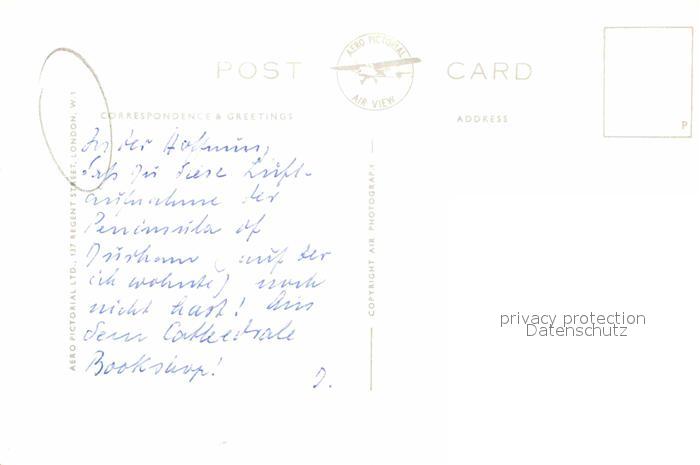 POST CARD
AERO PICTORIAL
AIR VIEW
P
CORRESPONDENCE & GREETINGS
ADDRESS
In der Hoffnung,
daß Du diese Luft-
aufnahme der
Peninsula of
Durham (auf der
ich wohnte) noch
nicht hast! Aus
dem Cathedrale
Bookshop!
J.
AERO PICTORIAL LTD., 137 REGENT STREET, LONDON, W.1
COPYRIGHT AIR PHOTOGRAPH
privacy protection
Datenschutz